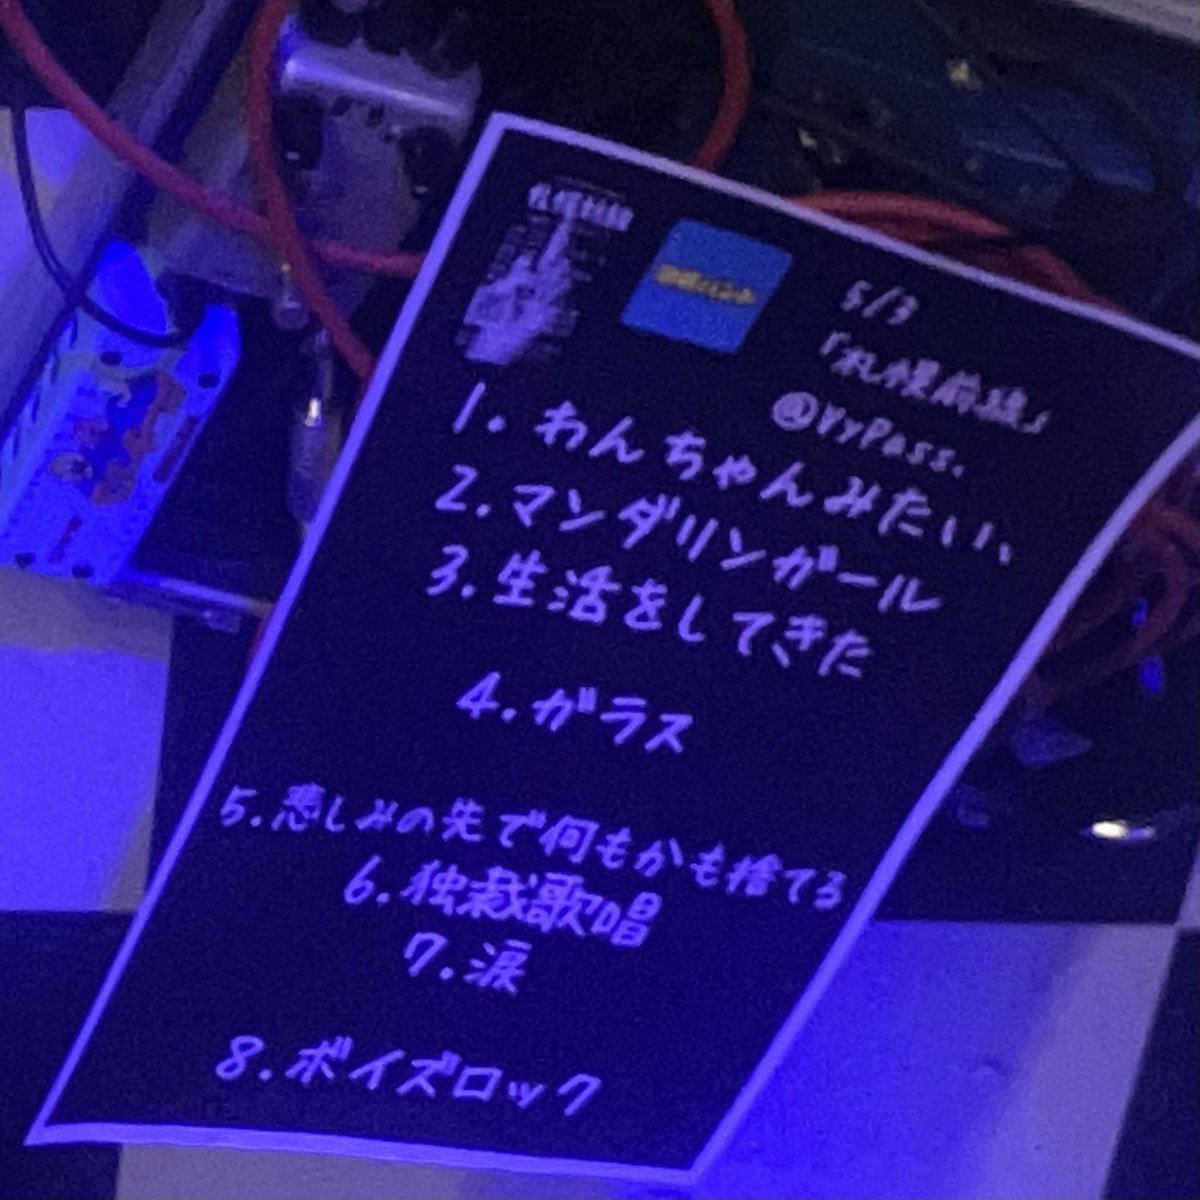 5/3
「札幌前線」
@VyPass.
1. わんちゃんみたい、
2. マンダリンガール
3. 生活をしてきた
4. ガラス
5. 悲しみの先で何もかも捨てろ
6. 独裁歌唱
7. 涙
8. ボイズロック